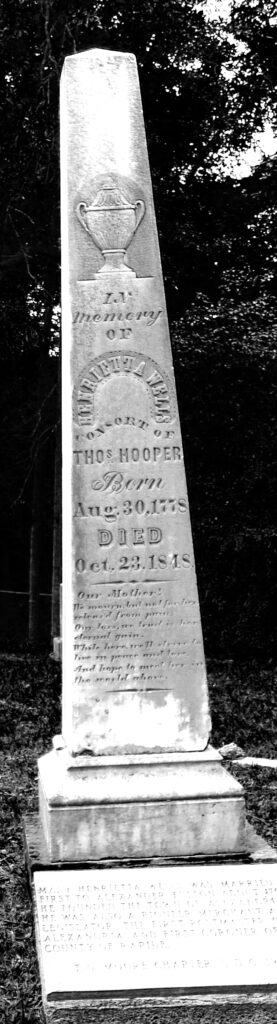 IN
Memory
OF
HENRIETTA WELLS
CONSORT OF
THOS HOOPER
Born
Aug. 30, 1778
DIED
Oct. 23. 1848
Our Mother!
We mourn, but not for her
released from pain
Our loss, we trust is her
eternal gain.
While here, we'll strive to
live in peace and love
And hope to meet her in
the world above.
MARY HENRIETTA WELLS WAS MARRIED
FIRST TO ALEXANDER FULTON
HE FOUNDED THE TOWN OF ALEXANDRIA
HE WAS ALSO A PIONEER MERCHANT AND
LEGISLATOR, THE FIRST
ALEXANDRIA AND FIRST CORONER OF
COUNTY OF RAPIDE.
T.O. MOORE CHAPTER